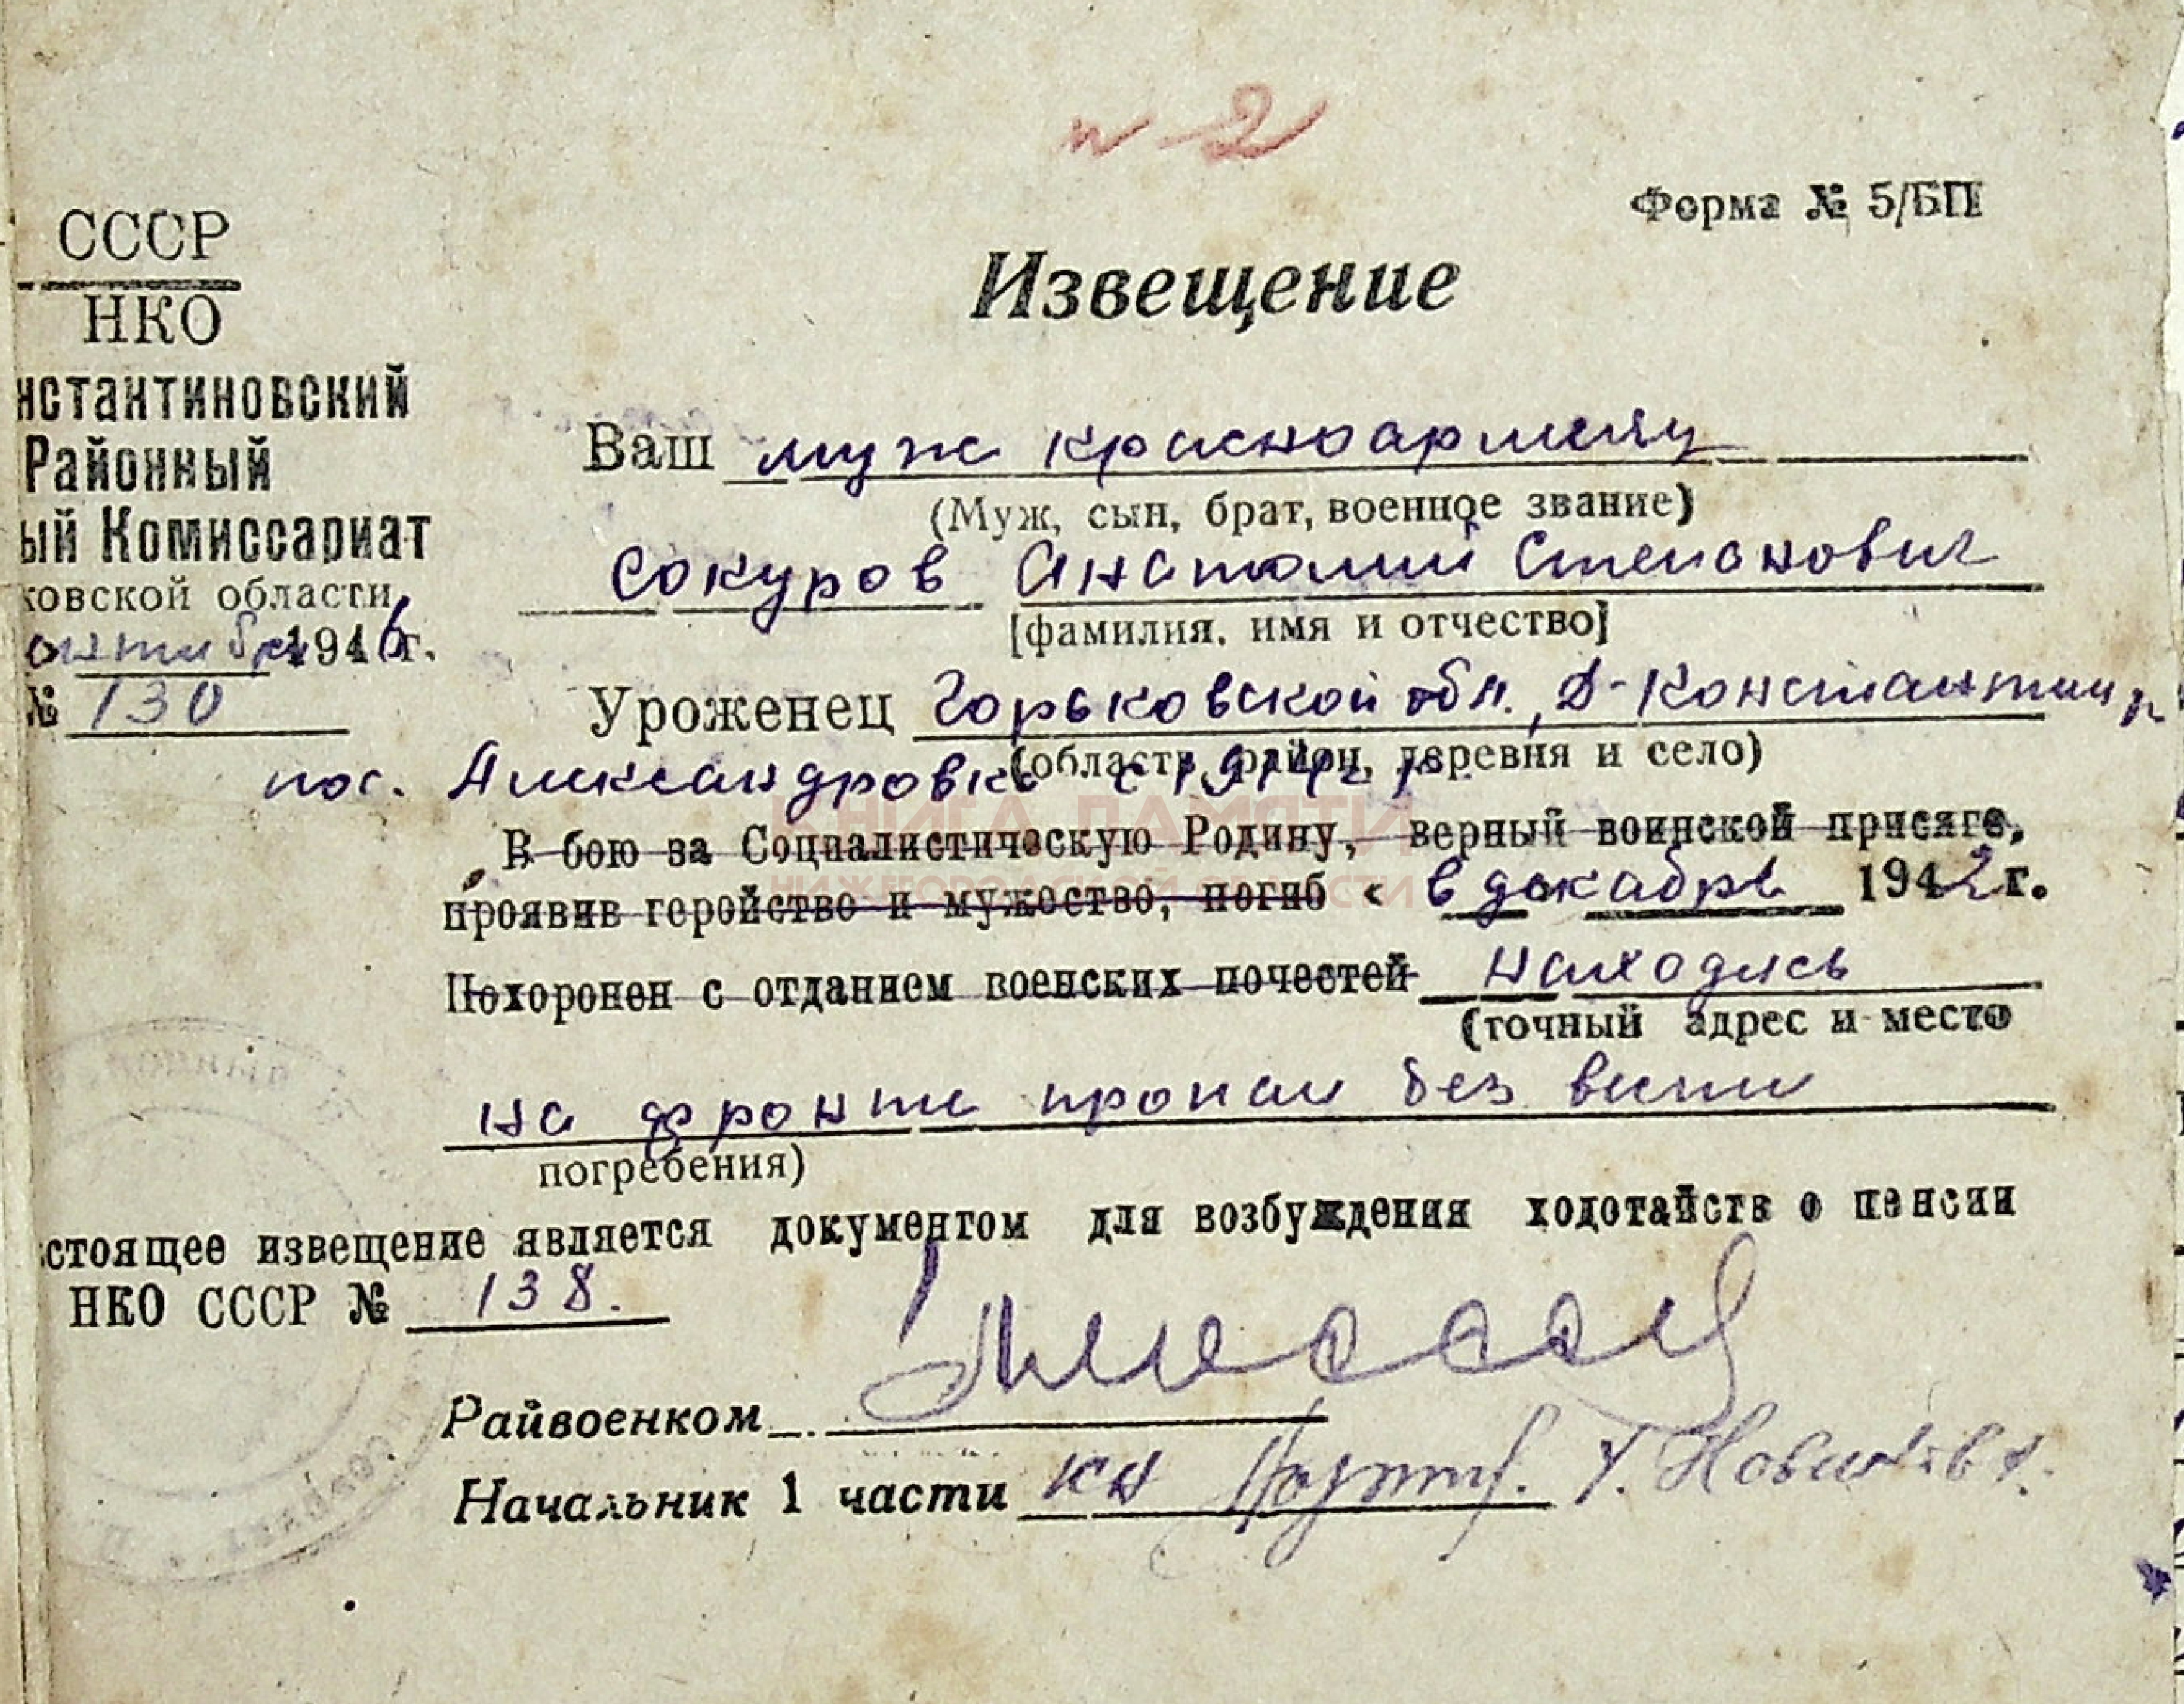 № 2
Форма № 5/БП
СССР
НКО
нстантиновский
Районный
ый Комиссариат
ковской области
октября 1946 г.
№ 130
Извещение
Ваш муж красноармеец
(Муж, сын, брат, военное звание)
Сокуров Анатолий Степанович
[фамилия, имя и отчество]
Уроженец Горьковской обл., Д-Константин, р
(область, район, деревня и село)
пос. Александровка с 1914 г.
КНИГА ПАМЯТИ
НИЖЕГОРОДСКОЙ ОБЛАСТИ
В бою за Социалистическую Родину, верный воинской присяге,
проявив геройство и мужество, погиб « в декабре 1942 г.
Похоронен с отданием военских почестей находясь
(точный адрес и место
на фронте пропал без вести
погребения)
стоящее извещение является документом для возбуждения ходотайств о пенсии
НКО СССР № 138.
Райвоенком
Начальник 1 части